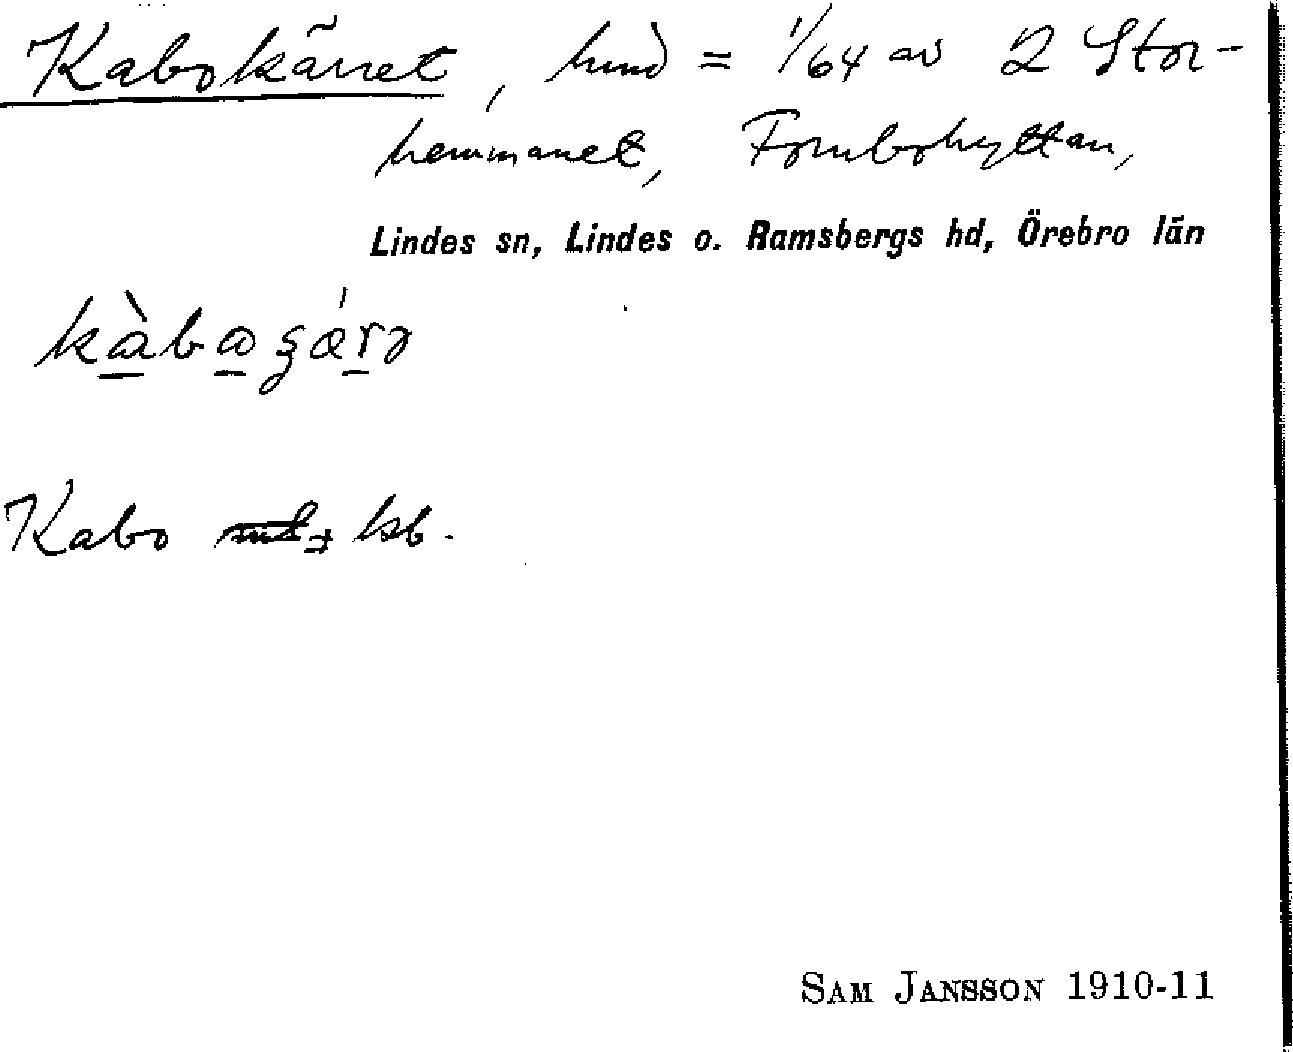 Kabokärret, hmd = 1/64 av 2 Stor-
hemmanet, Fornbohyttan,
Lindes sn, Lindes o. Ramsbergs hd, Örebro län
Kabo ksb.
SAM JANSSON 1910-11